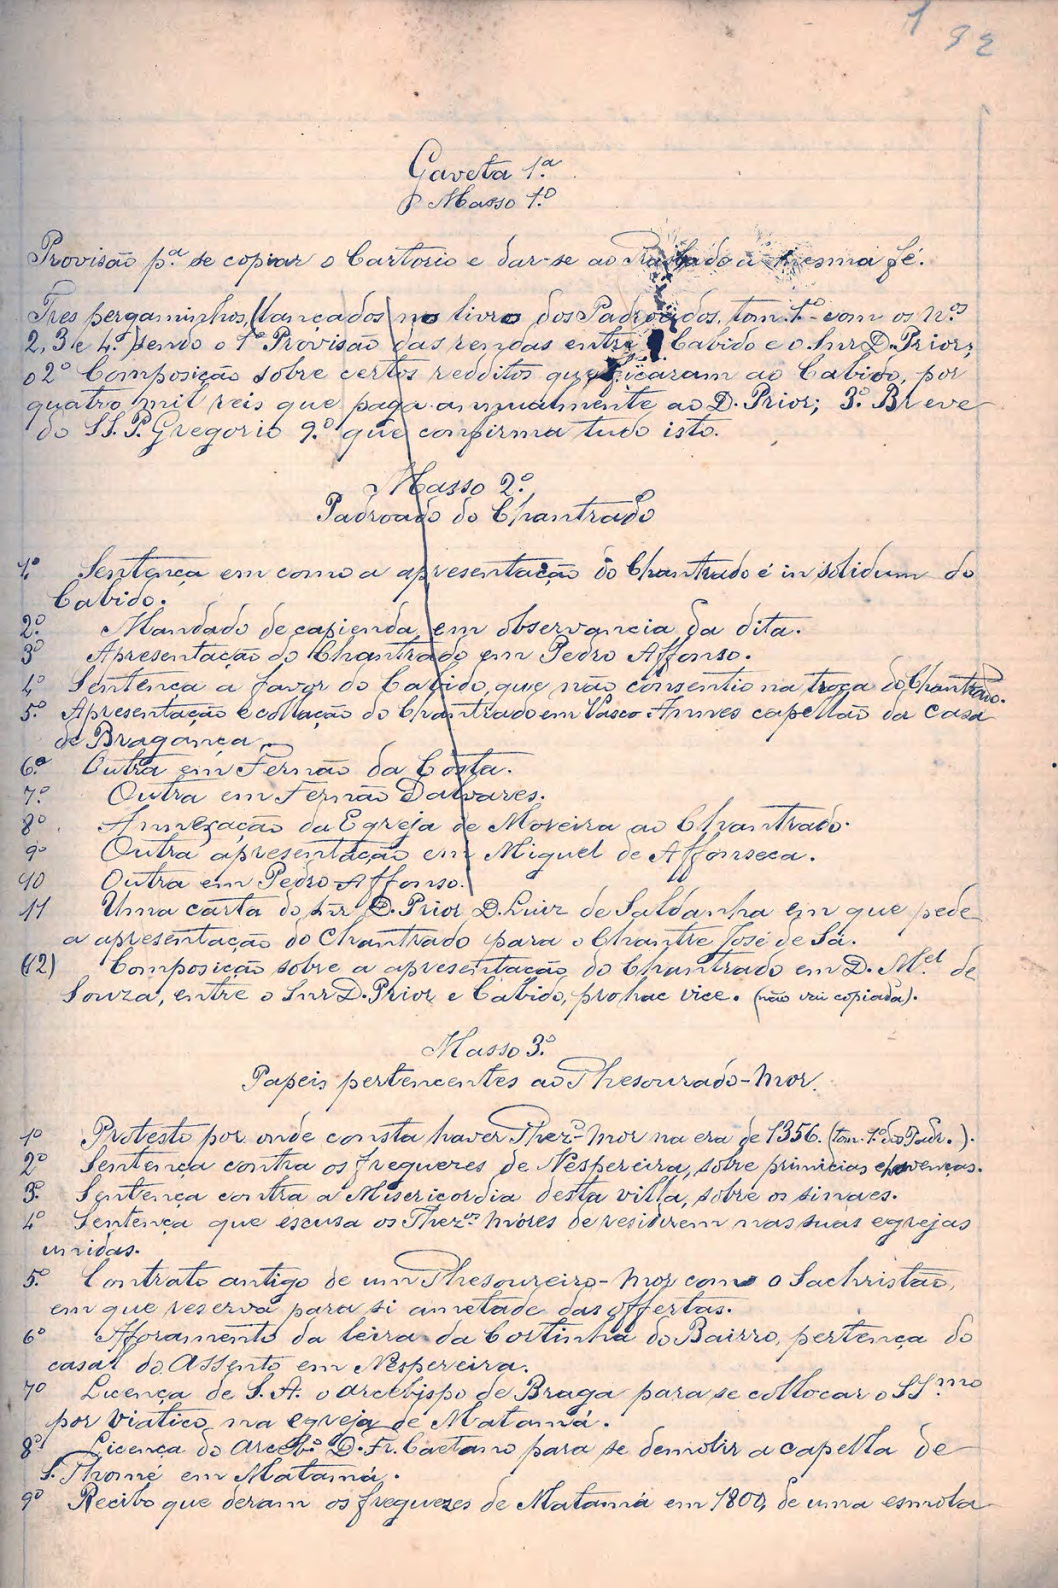 1
92
Gaveta 1.ª
Masso 1.º
Provisão p.ª se copiar o Cartorio e dar-se ao Traslado a mesma fé.
Tres pergaminhos, (lançados no livro dos Padroados, tom. 1.º com os n.ºs
2, 3 e 4.) sendo o 1.º Provisão das rendas entre o Cabido e o Snr D. Prior;
o 2º Composição sobre certos redditos que ficaram ao Cabido, por
quatro mil reis que paga annualmente ao D. Prior; 3.º Breve
do SS. P. Gregorio 9.º que confirma tudo isto.
Masso 2.º
Padroado do Chantrado
1º Sentença em como a apresentação do Chantrado é in solidum do
Cabido.
2º. Mandado de capienda, em observancia da dita.
3º Apresentação do Chantrado em Pedro Affonso.
4º Sentença a favor do Cabido, que não consentio na troca do Chantrado.
5º. Apresentação e collação do Chantrado em Vasco Annes capellão da Casa
de Bragança
6.º Outra em Fernão da Costa.
7º. Outra em Fernão Dalvares.
8º. Annexação da Egreja de Moreira ao Chantrado.
9º Outra apresentação em Miguel de Affonseca.
10 Outra em Pedro Affonso.
11 Uma carta do Snr D. Prior D. Luiz de Saldanha em que pede
a apresentação do Chantrado para o Chantre José de Sá.
(12) Composição sobre a apresentação do Chantrado em D. M.el de
Souza, entre o Snr D. Prior e Cabido, pro hac vice. (não vai copiada).
Masso 3.º
Papeis pertencentes ao Thesourado-Mor.
1º Protesto por onde consta haver Thez.º-Mor na era de 1356. (tom. 1.º do Padr.).
2º Sentença contra os freguezes de Nespereira, sobre primicias e avenças.
3º. Sentença contra a Misericordia desta villa, sobre os sinaes.
4º Sentença que escusa os Thez.ros Móres de residirem nas suas egrejas
unidas.
5º. Contrato antigo de um Thesoureiro-Mor com o Sachristão,
em que reserva para si ametade das offertas.
6º Afforamento da leira da Cortinha do Bairro, pertença do
casal do Assento em Nespereira.
7º Licença de S. A. o arcebispo de Braga para se collocar o SS.mo
por viatico na egreja de Matamá.
8º. Licença do Arceb.º D. Fr. Caetano para se demolir a capella de
S. Thomé em Matamá.
9º Recibo que deram os freguezes de Matamá em 1800, de uma esmola